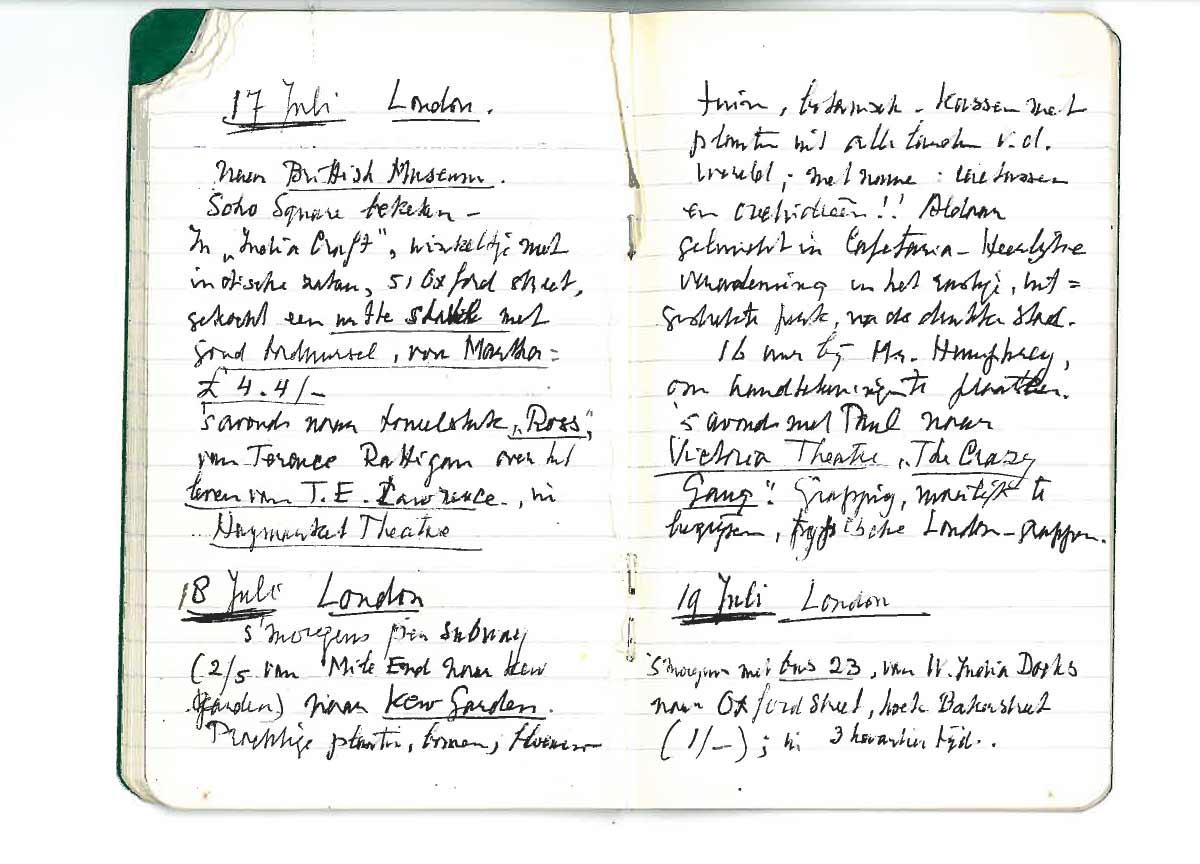 17 Juli London.
Naar Brittish Museum.
Soho Square bekeken –
In „India Craft”, winkeltje met
indische zaken, 51 Oxford street,
gekocht een witte met
goud borduursel, voor Martha =
£ 4.4/–
's avonds naar toneelstuk „Ross”,
van Terence Rattigan over het
leven van T.E. Lawrence, in
Haymarket Theatre
18 Juli London
s'morgens per subway
(2/5 van Mile End naar Kew
Garden) naar Kew Garden.
Prachtige planten, bomen, bloemen
tuin, botanisch – Kassen met
planten uit alle landen v.d.
wereld; met name: cactussen
en orchideeën!! Aldaar
geluncht in Cafetaria – Heerlijke
verademing in het rustige, uit=
gestrekte park, na de drukke stad.
16 uur bij Mr. Humphrey,
om handtekeningen te plaatsen.
's avonds met Paul naar
Victoria Theatre „The Crazy
Gang”. Grappig, moeilijk te
begrijpen, typische London-grappen.
19 Juli London
's morgens met bus 23, van W. India Docks
naar Oxford Street, hoek Bakerstreet
(1/–); in 3 kwartier tijd.